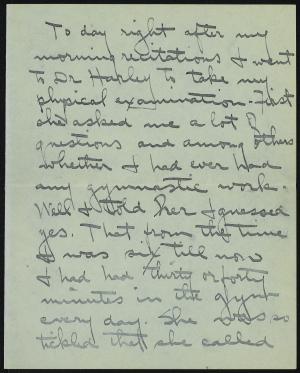 To day right after my
morning recitations I went
to Dr Harley to take my
physical examination - First
she asked me a lot of
questions and among others
whether I had ever had
any gymnastic work -
Well I told her I guessed
yes. That from the time
I was six till now
I had had thirty or forty
minutes in the gym
every day. She was so
tickled that she called